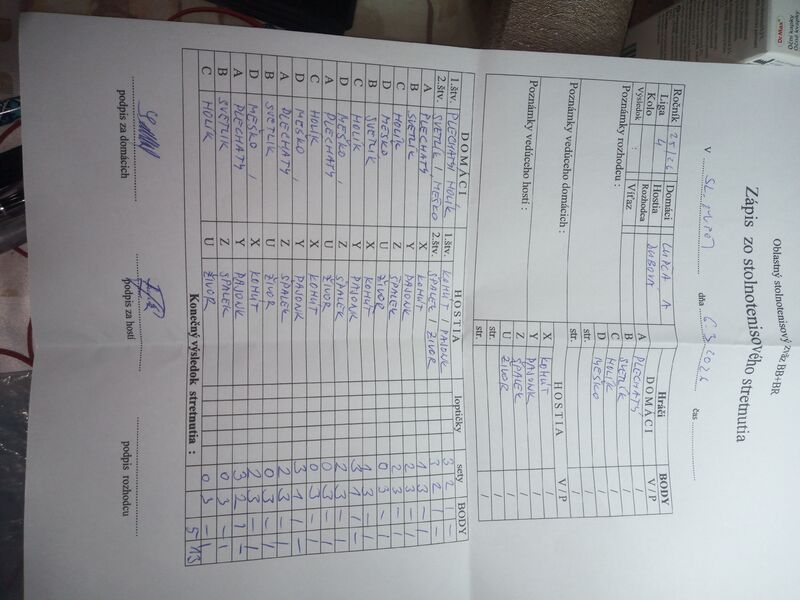 Oblastný stolnotenisový zväz BB+BR
Zápis zo stolnotenisového stretnutia
V SL. ĽUPČI dňa 6.3.2026 čas
Ročník 25/26 Domáci ĽUPČA A
Liga 4 Hostia DUBOVÁ
Kolo Rozhodca
Výsledok : Víťaz
Poznámky rozhodcu :
Poznámky vedúceho domácich :
Poznámky vedúceho hostí :
Hráči BODY
DOMÁCI V / P
A PLECHATÝ /
B SVETLÍK /
C HOLÍK /
D MEŠKO /
str. /
str. /
HOSTIA V / P
X KOHÚT /
Y PAJONK /
Z ŠPALEK /
U ŽIVOR /
str. /
str. /
DOMÁCI HOSTIA loptičky sety BODY
1.štv. PLECHATÝ HOLÍK 1.štv. KOHÚT / PAJONK 3 2 1 –
2.štv. SVETLÍK / MEŠKO 2.štv. ŠPALEK / ŽIVOR 3 2 1 –
A PLECHATÝ X KOHÚT 1 3 – 1
B SVETLÍK Y PAJONK 2 3 – 1
C HOLÍK Z ŠPALEK 2 3 – 1
D MEŠKO U ŽIVOR 0 3 – 1
B SVETLÍK X KOHÚT 1 3 – 1
C HOLÍK Y PAJONK 3 1 1 –
D MEŠKO Z ŠPALEK 2 3 – 1
A PLECHATÝ U ŽIVOR 0 3 – 1
C HOLÍK X KOHÚT 0 3 – 1
D MEŠKO Y PAJONK 3 1 1 –
A PLECHATÝ Z ŠPALEK 2 3 – 1
B SVETLÍK U ŽIVOR 0 3 – 1
D MEŠKO X KOHÚT 2 3 – 1
A PLECHATÝ Y PAJONK 3 2 1 –
B SVETLÍK Z ŠPALEK 0 3 – 1
C HOLÍK U ŽIVOR 0 3 – 1
Konečný výsledok stretnutia : 5 13
podpis za domácich podpis za hostí podpis rozhodcu